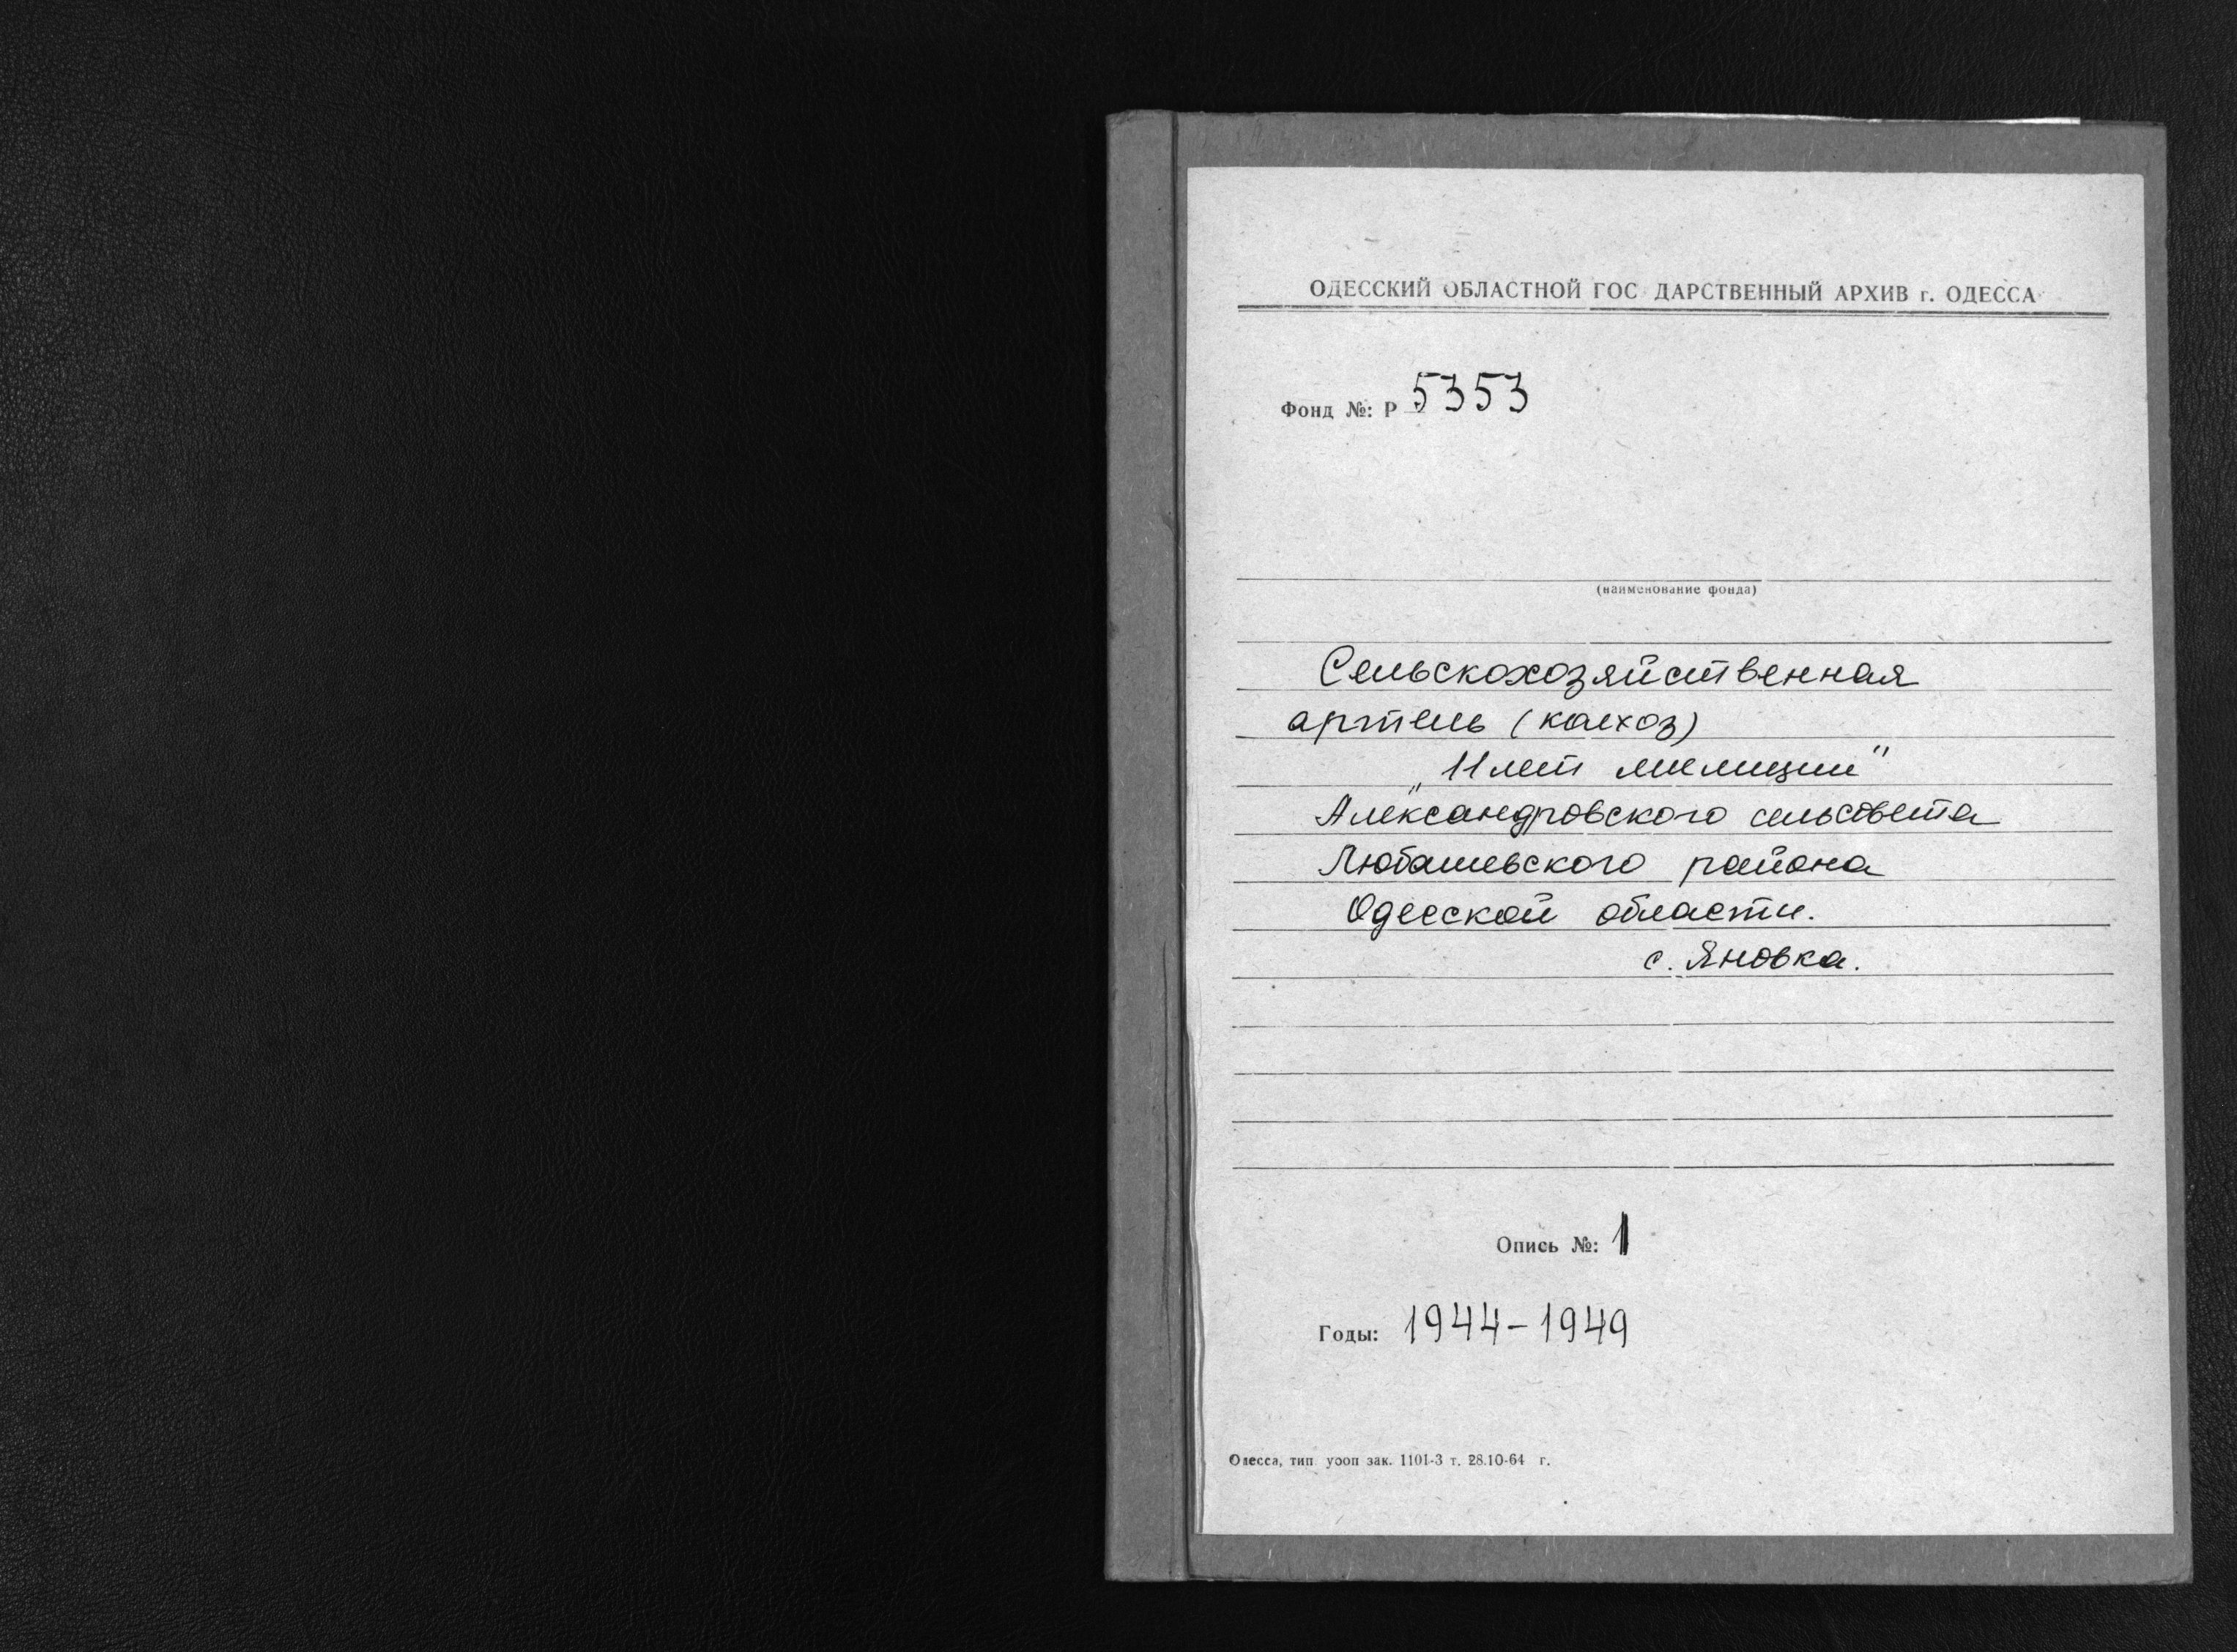 ОДЕССКИЙ ОБЛАСТНОЙ ГОС ДАРСТВЕННЫЙ АРХИВ г. ОДЕССА
Фонд №: Р 5353
(наименование фонда)
Сельскохозяйственная
артель (колхоз)
„11 лет милиции"
Александровского сельсовета
Любашевского района
Одесской области.
с. Яновка.
Опись №: 1
Годы: 1944-1949
Одесса, тип. уооп зак. 1101-3 т. 28.10-64 г.